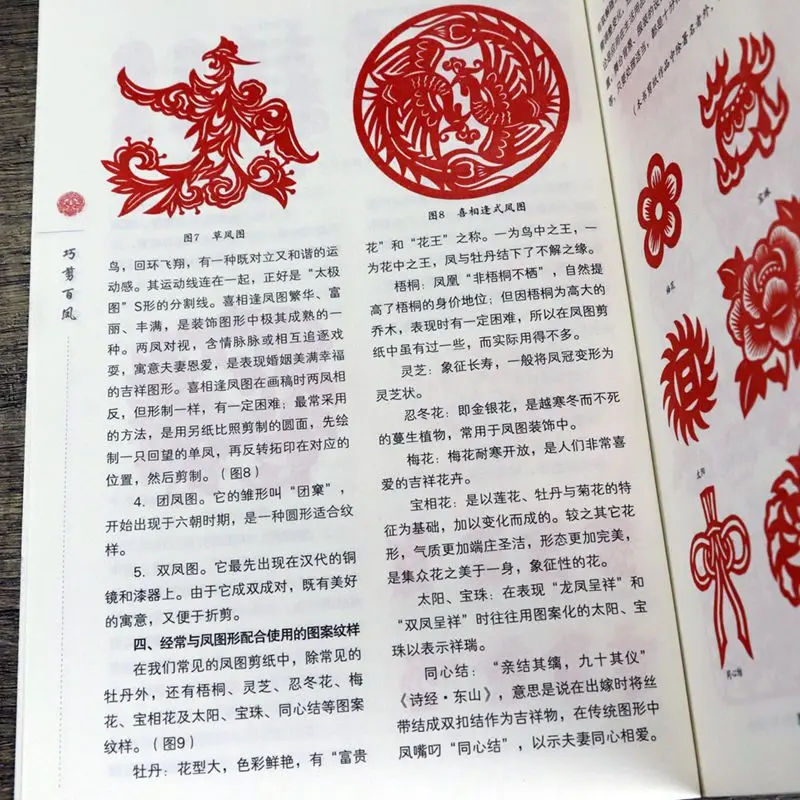 图7 草凤图
图8 喜相逢式凤图
巧剪百凤
鸟，回环飞翔，有一种既对立又和谐的运
动感。其运动线连在一起，正好是“太极
图”S形的分割线。喜相逢凤图繁华、富
丽、丰满，是装饰图形中极其成熟的一
种。两凤对视，含情脉脉或相互追逐戏
耍，寓意夫妻恩爱，是表现婚姻美满幸福
的吉祥图形。喜相逢凤图在画稿时两凤相
反，但形制一样，有一定困难；最常采用
的方法，是用另纸比照剪制的圆面，先绘
制一只回望的单凤，再反转拓印在对应的
位置，然后剪制。（图8）
4. 团凤图。它的雏形叫“团窠”，
开始出现于六朝时期，是一种圆形适合纹
样。
5. 双凤图。它最先出现在汉代的铜
镜和漆器上。由于它成双成对，既有美好
的寓意，又便于折剪。
四、经常与凤图形配合使用的图案纹样
在我们常见的凤图剪纸中，除常见的
牡丹外，还有梧桐、灵芝、忍冬花、梅
花、宝相花及太阳、宝珠、同心结等图案
纹样。（图9）
牡丹：花型大，色彩鲜艳，有“富贵
花”和“花王”之称。一为鸟中之王，一
为花中之王，凤与牡丹结下了不解之缘。
梧桐：凤凰“非梧桐不栖”，自然提
高了梧桐的身价地位；但因梧桐为高大的
乔木，表现时有一定困难，所以在凤图剪
纸中虽有过一些，而实际用得不多。
灵芝：象征长寿，一般将凤冠变形为
灵芝状。
忍冬花：即金银花，是越寒冬而不死
的蔓生植物，常用于凤图装饰中。
梅花：梅花耐寒开放，是人们非常喜
爱的吉祥花卉。
宝相花：是以莲花、牡丹与菊花的特
征为基础，加以变化而成的。较之其它花
形，气质更加端庄圣洁，形态更加完美，
是集众花之美于一身，象征性的花。
太阳、宝珠：在表现“龙凤呈祥”和
“双凤呈祥”时往往用图案化的太阳、宝
珠以表示祥瑞。
同心结：“亲结其缡，九十其仪”
《诗经·东山》，意思是说在出嫁时将丝
带结成双扣结作为吉祥物，在传统图形中
凤嘴叼“同心结”，以示夫妻同心相爱。
（本书剪纸作品中除署名者外，
宝珠
梅花
太阳
同心结